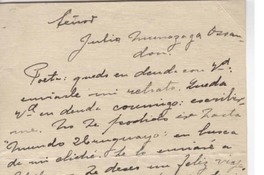 Señor
Julio Munizaga Ossan-
don.
Poeta: quedo en deuda con Ud.
enviarle mi retrato. Queda
Ud en deuda conmigo: escribir-
me. No he podido ir Zarla
Mundo Uruguayo: en busca
de mi cliché. Se lo enviaré a
Le deseo un feliz viaje